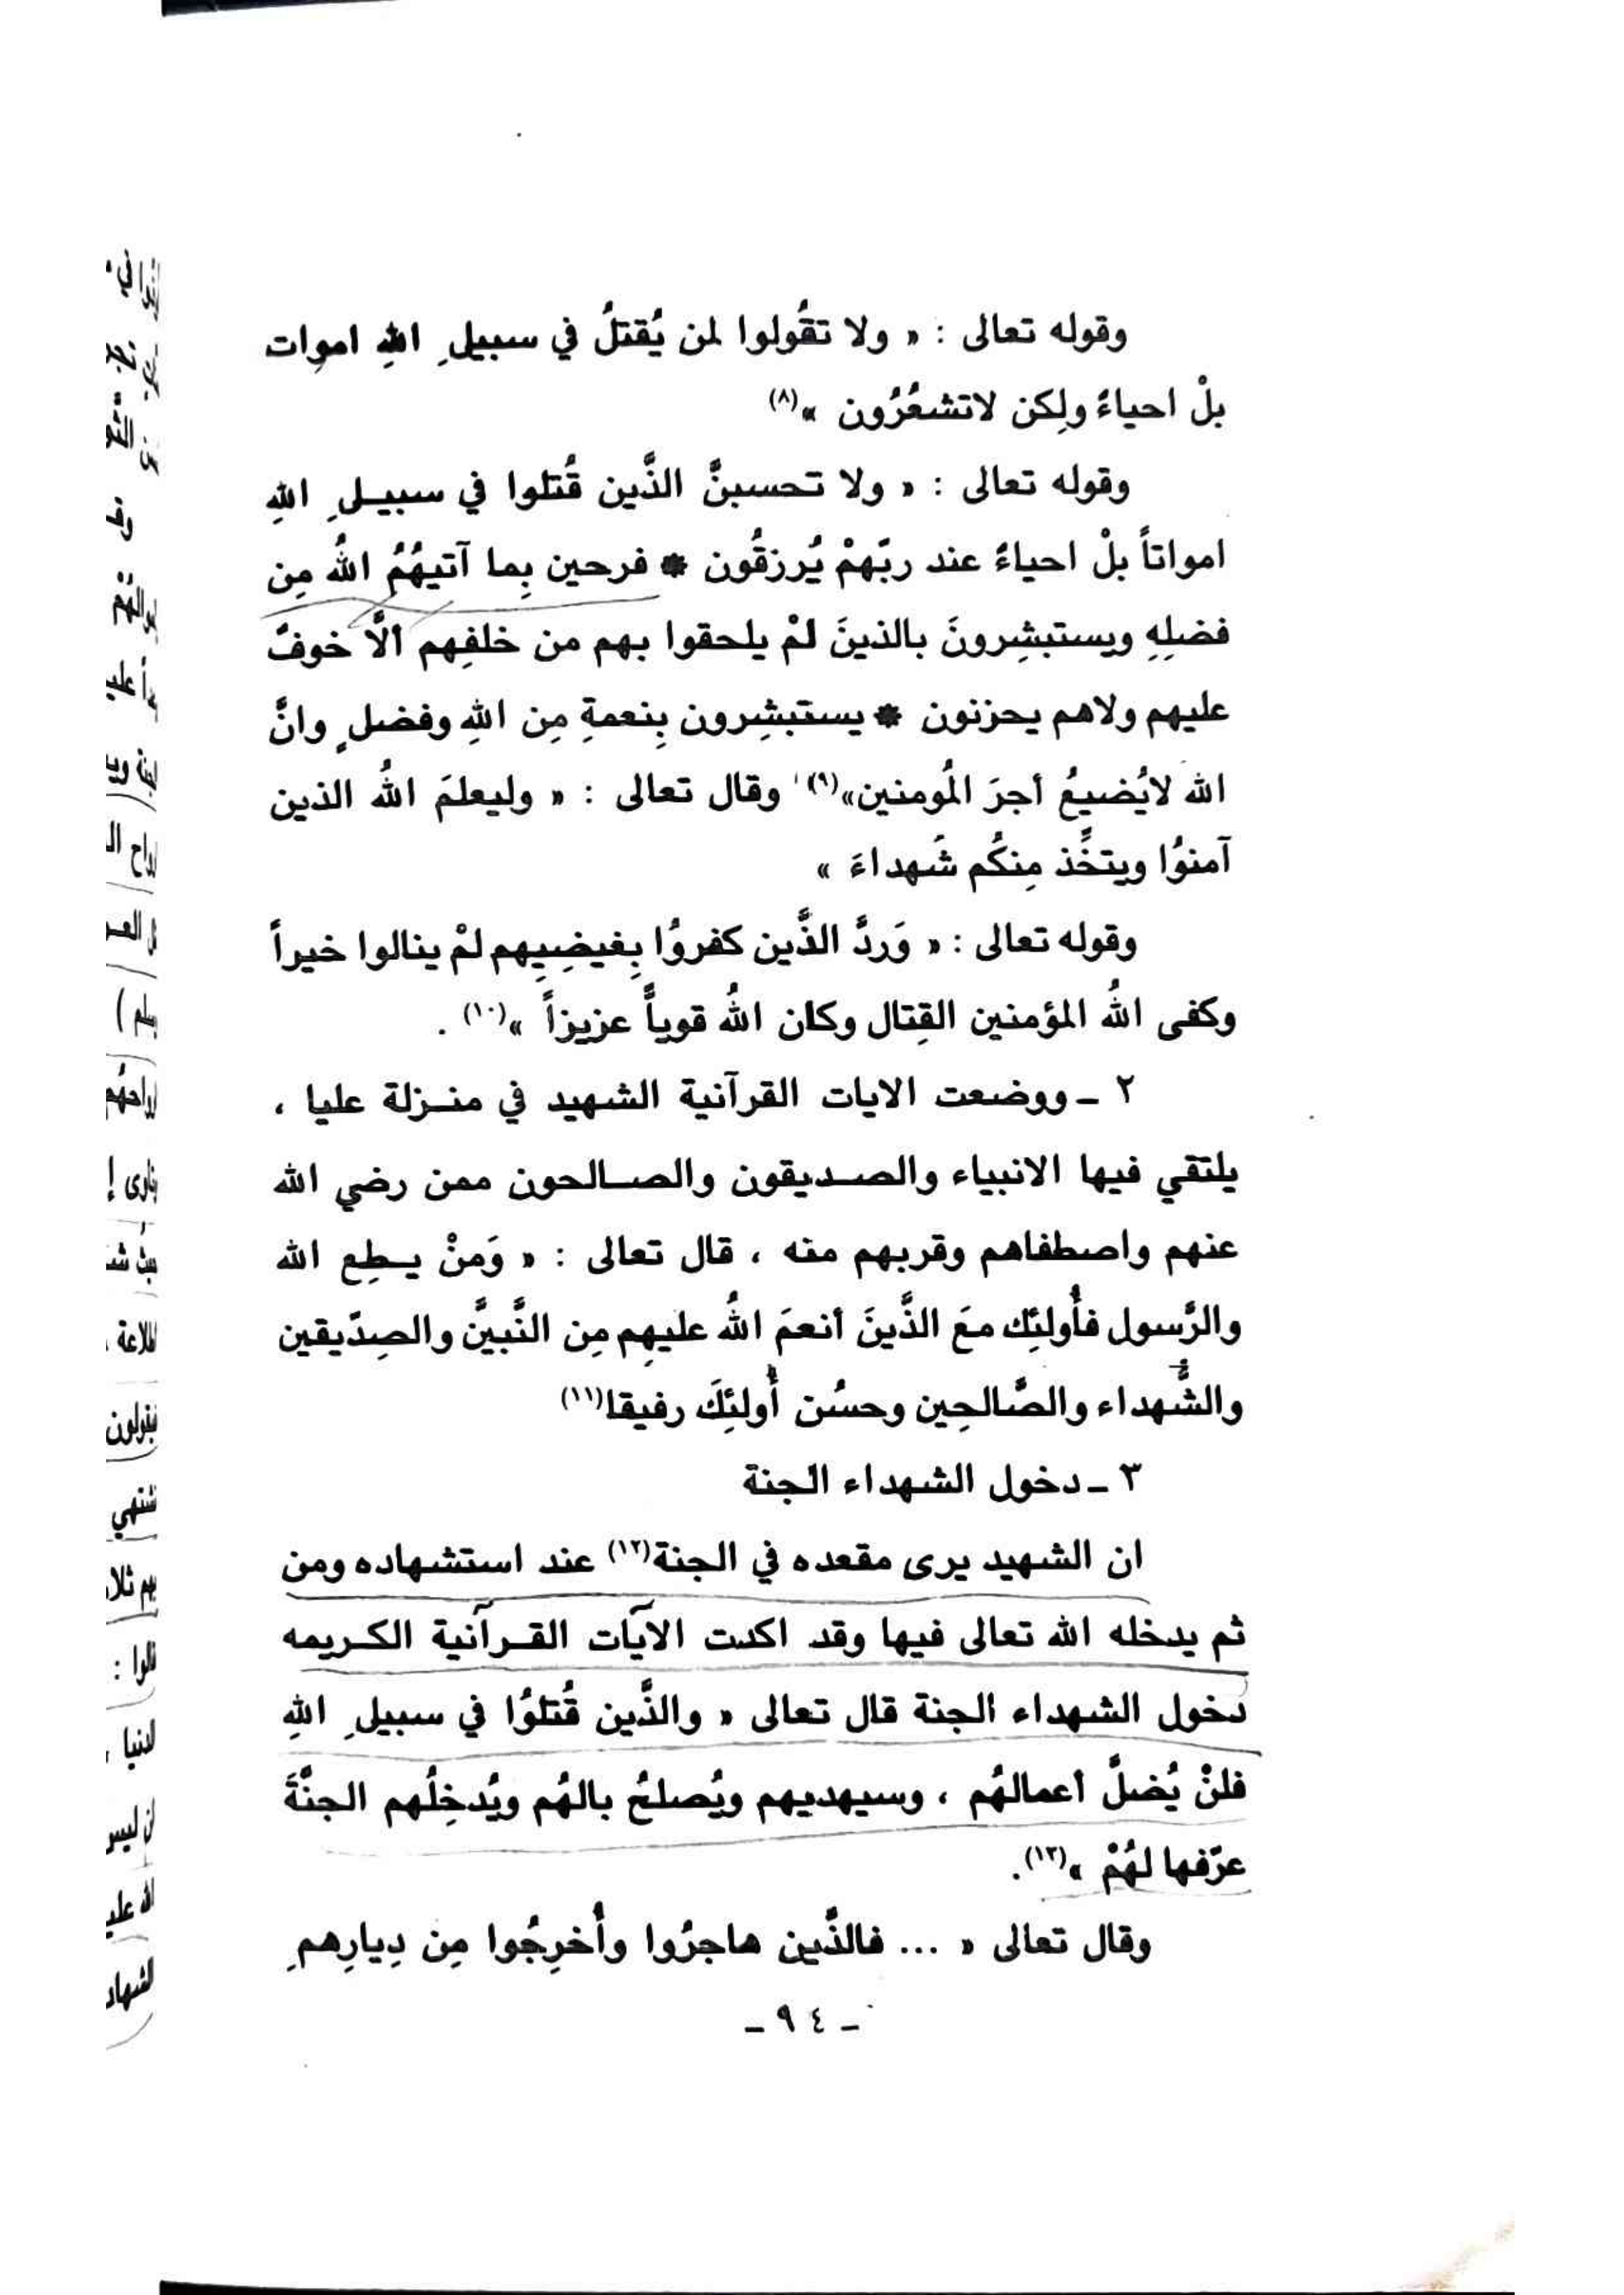 وقوله تعالى : « ولا تقُولوا لمن يُقتلُ في سبيلِ اللهِ اموات
بلْ احياءً ولِكن لاتشعُرُون »(٨)
وقوله تعالى : « ولا تحسبنَّ الذَّين قُتلوا في سبيـلِ اللهِ
امواتاً بلْ احياءً عند ربّهمْ يُرزقُون * فرحين بِما آتيهُمُ اللهُ مِن
فضلِهِ ويستبشِرونَ بالذينَ لمْ يلحقوا بهم من خلفِهم ألَّا خوفٌ
عليهم ولاهم يحزنون * يستبشِرون بِنعمةِ مِن اللهِ وفضلٍ وانَّ
الله لايُضيعُ أجرَ المُومنين»(٩) وقال تعالى : « وليعلمَ اللهُ الذين
آمنوُا ويتخَّذ مِنكُم شُهداءَ »
وقوله تعالى : « وَردَّ الذَّين كفروُا بِغيضِيِهم لمْ ينالوا خيراً
وكفى اللهُ المؤمنين القِتال وكان اللهُ قوياًّ عزيزاً »(١٠) .
٢ ـ ووضعت الايات القرآنية الشهيد في منـزلة عليا ،
يلتقي فيها الانبياء والصـديقون والصـالحون ممن رضي الله
عنهم واصطفاهم وقربهم منه ، قال تعالى : « وَمنْ يـطِع الله
والرَّسول فأُولئِك معَ الذَّينَ أنعمَ اللهُ عليهِم مِن النَّبينَّ والصِدّيقين
والشُّهداء والصَّالحِين وحسُن أُولئِكَ رفيقا(١١)
٣ ـ دخول الشهداء الجنة
ان الشهيد يرى مقعده في الجنة(١٢) عند استشهاده ومن
ثم يدخله الله تعالى فيها وقد اكدت الآيات القـرآنية الكـريمه
دخول الشهداء الجنة قال تعالى « والذَّين قُتلوُا في سبيلِ اللهِ
فلنْ يُضلَّ أعمالهُم ، وسيهديهم ويُصلحُ بالهُم ويُدخِلُهم الجنَّةَ
عرّفها لهُمْ »(١٣).
وقال تعالى « ... فالذَّين هاجرُوا وأُخرِجُوا مِن دِيارِهمِ
ـ ٩٤ ـ